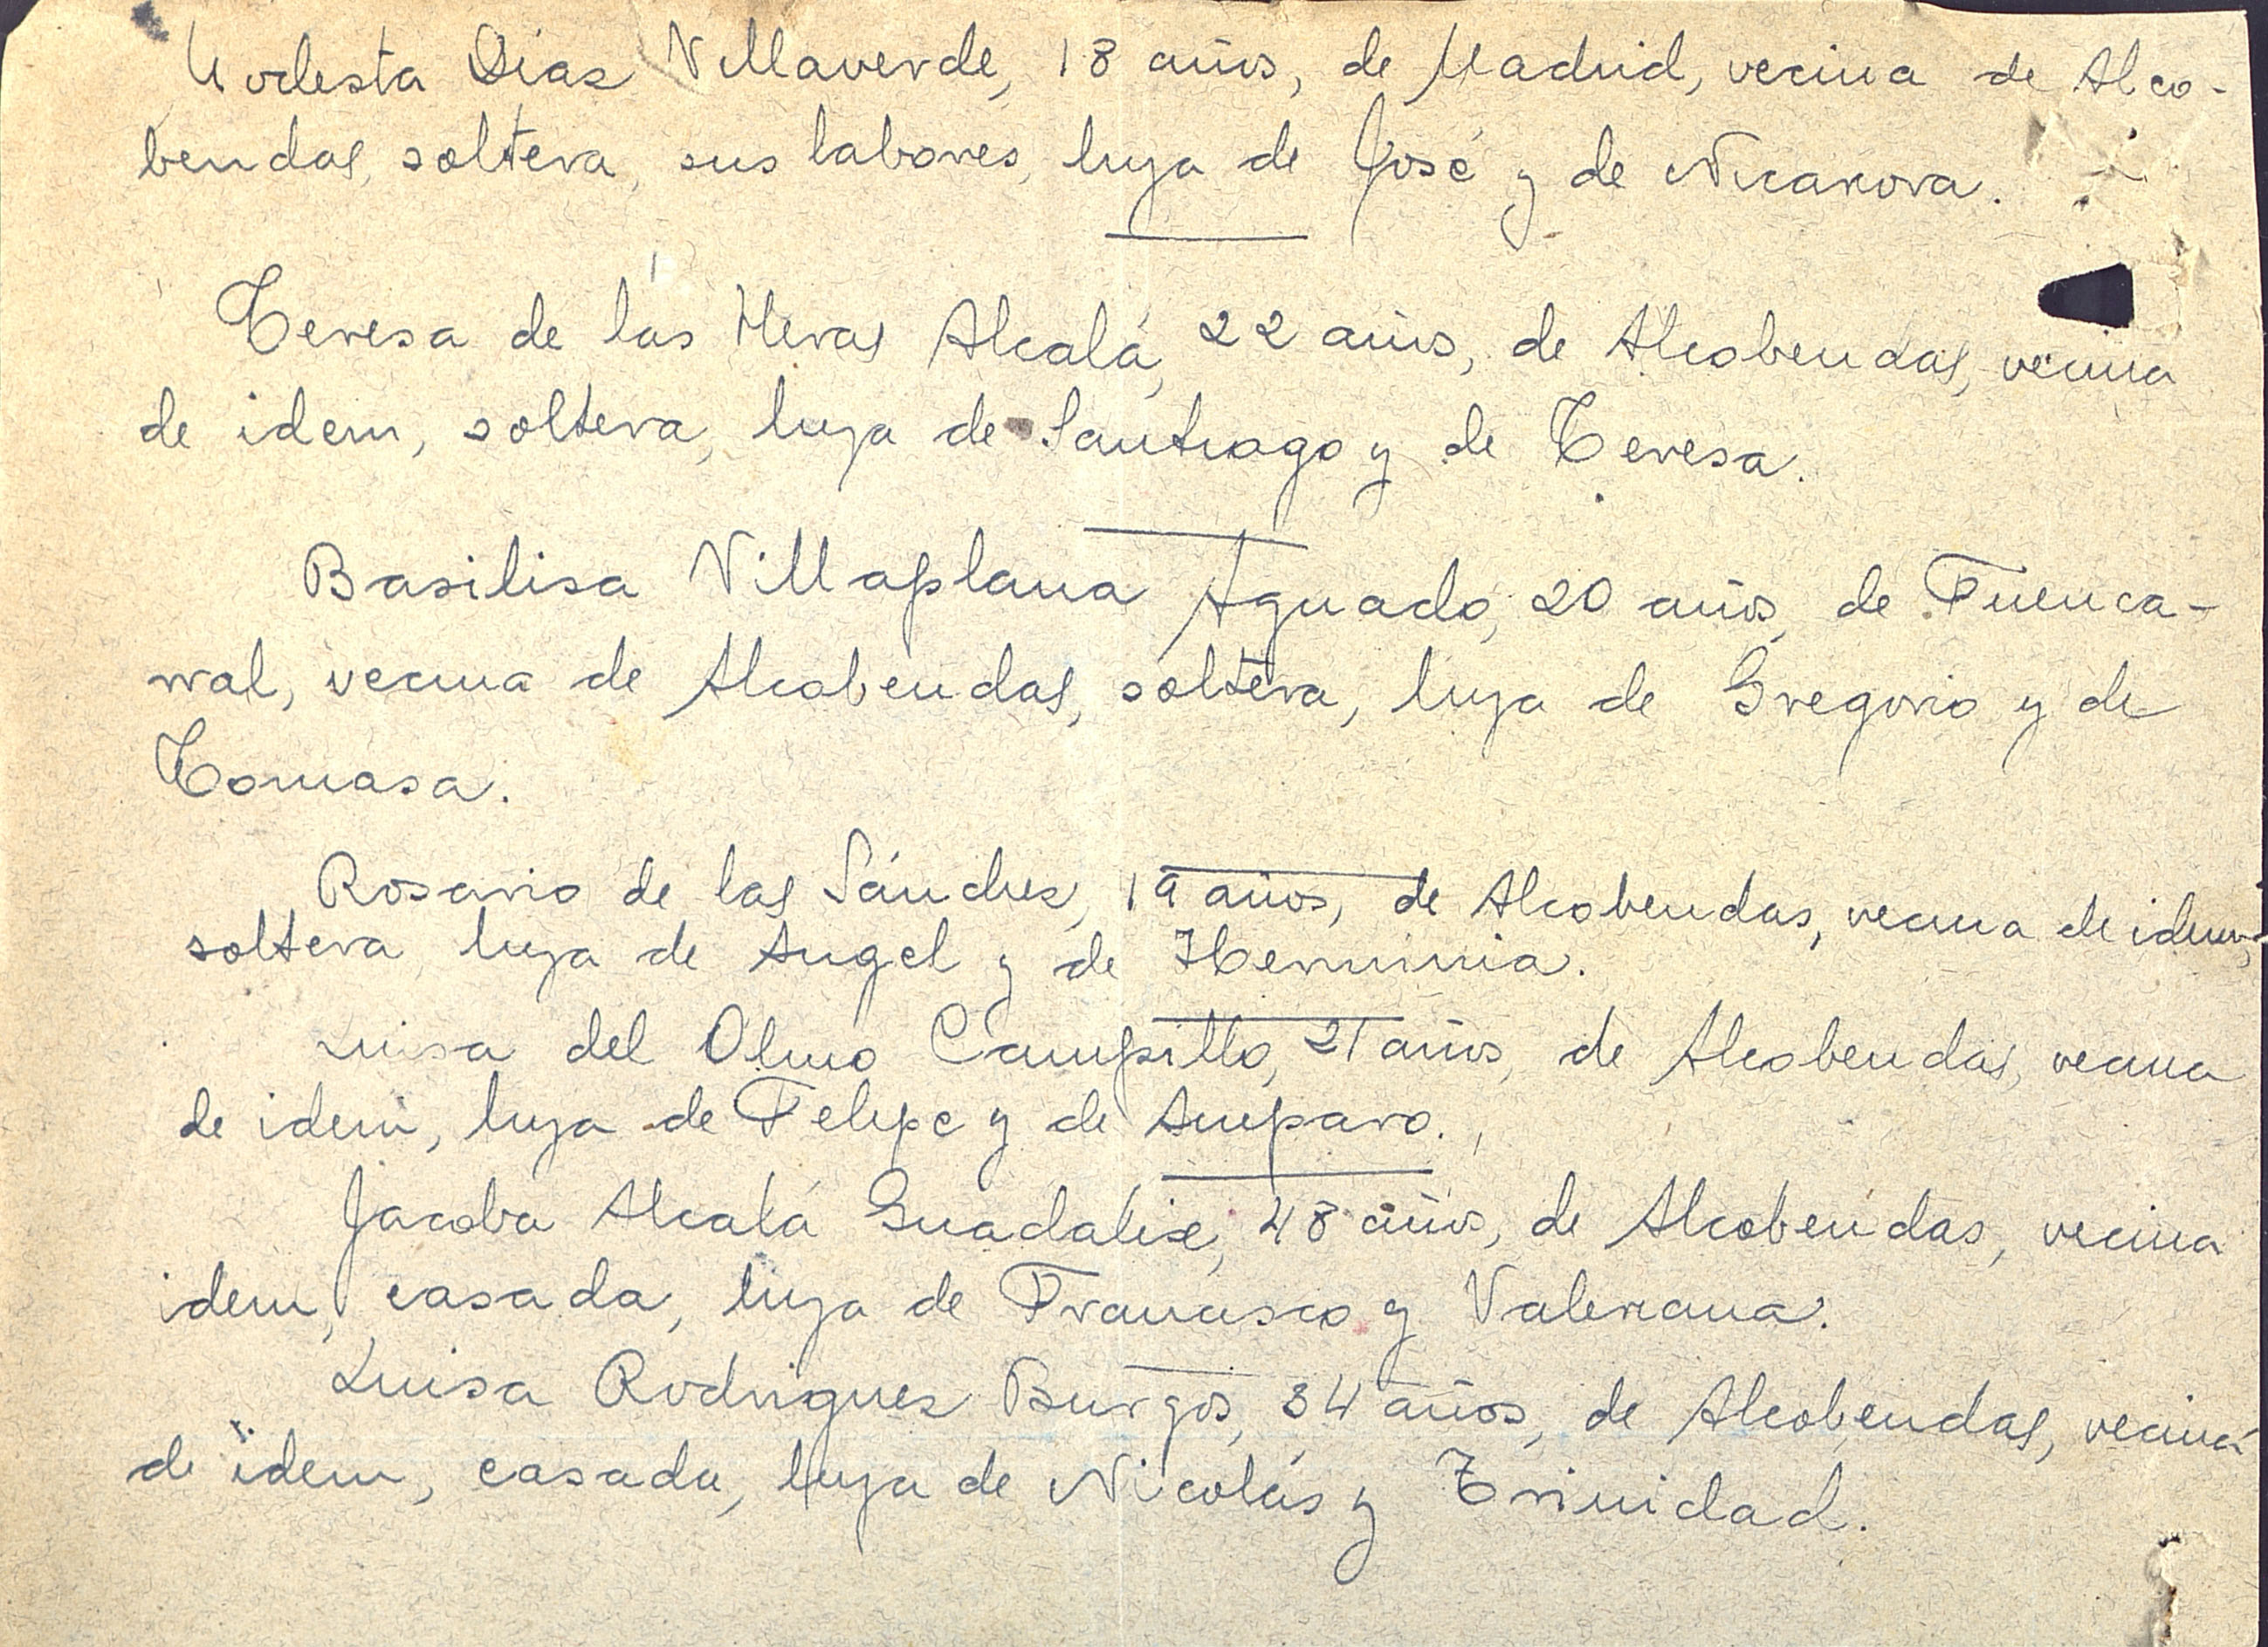 Modesta Diaz Villaverde, 18 años, de Madrid, vecina de Alco-
bendas, soltera, sus labores, hija de José y de Nicanora.
Teresa de las Heras Alcalá, 22 años, de Alcobendas, vecina
de idem, soltera, hija de Santiago y de Teresa.
Basilisa Villaplana Aguado, 20 años, de Fuenca-
rral, vecina de Alcobendas, soltera, hija de Gregorio y de
Tomasa.
Rosario de las Sánchez, 19 años, de Alcobendas, vecina de idem,
soltera, hija de Angel y de Herminia.
Luisa del Olmo Campillo, 21 años, de Alcobendas, vecina
de idem, hija de Felipe y de Amparo.
Jacoba Alcalá Guadalix, 48 años, de Alcobendas, vecina
idem, casada, hija de Francisco y Valeriana.
Luisa Rodriguez Burgos, 34 años, de Alcobendas, vecina
de idem, casada, hija de Nicolás y Trinidad.